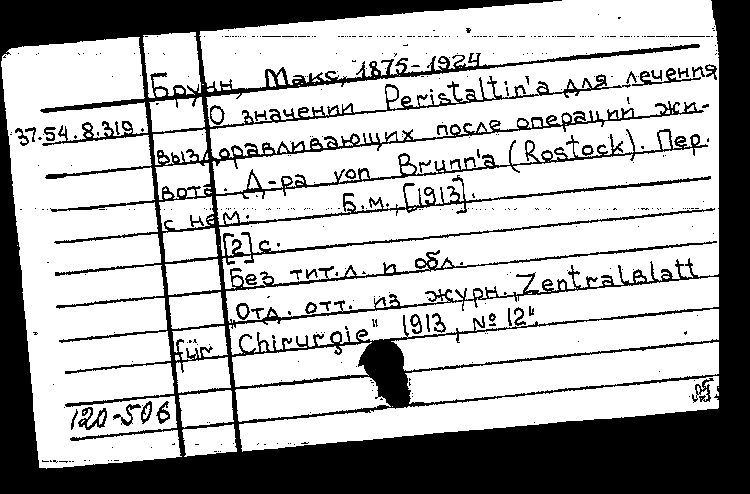 Брунн, Макс, 1875-1924
О значении Peristaltin'а для лечения
37.54.8.319.
выздоравливающих после операций жи-
вота. Д-ра von Brunn'a (Rostock). Пер.
с нем. Б.м., [1913].
[2] с.
Без тит.л. и обл.
"Отд. отт. из журн. "Zentralblatt
für Chirurgie" 1913, № 12".
120-506